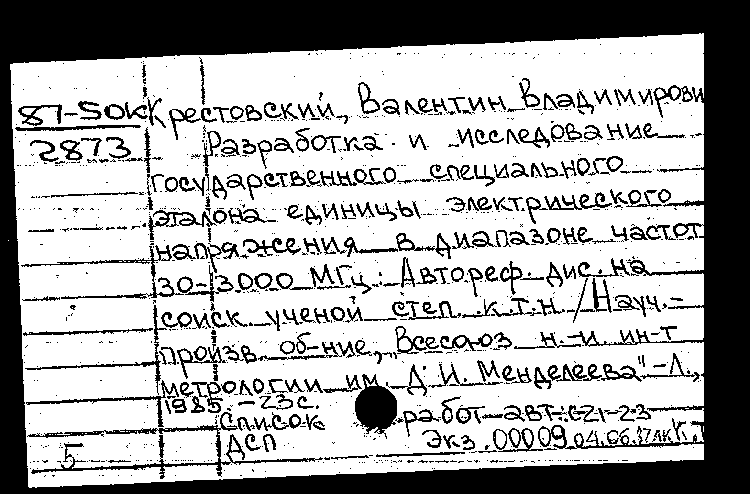 87-50к Крестовский, Валентин Владимирови
2873 Разработка и исследование
государственного специального
эталона единицы электрического
напряжения в диапазоне частот
30-3000 МГц: Автореф. дис. на
соиск ученой степ. к.т.н. /Науч.-
произв. об-ние, "Всесоюз н.-и ин-т
метрологии им. Д. И. Менделеева" -Л.,
1985. -23с
Список работ авт.: с 21-23
ДСП Экз. 00009 04.06.87
5